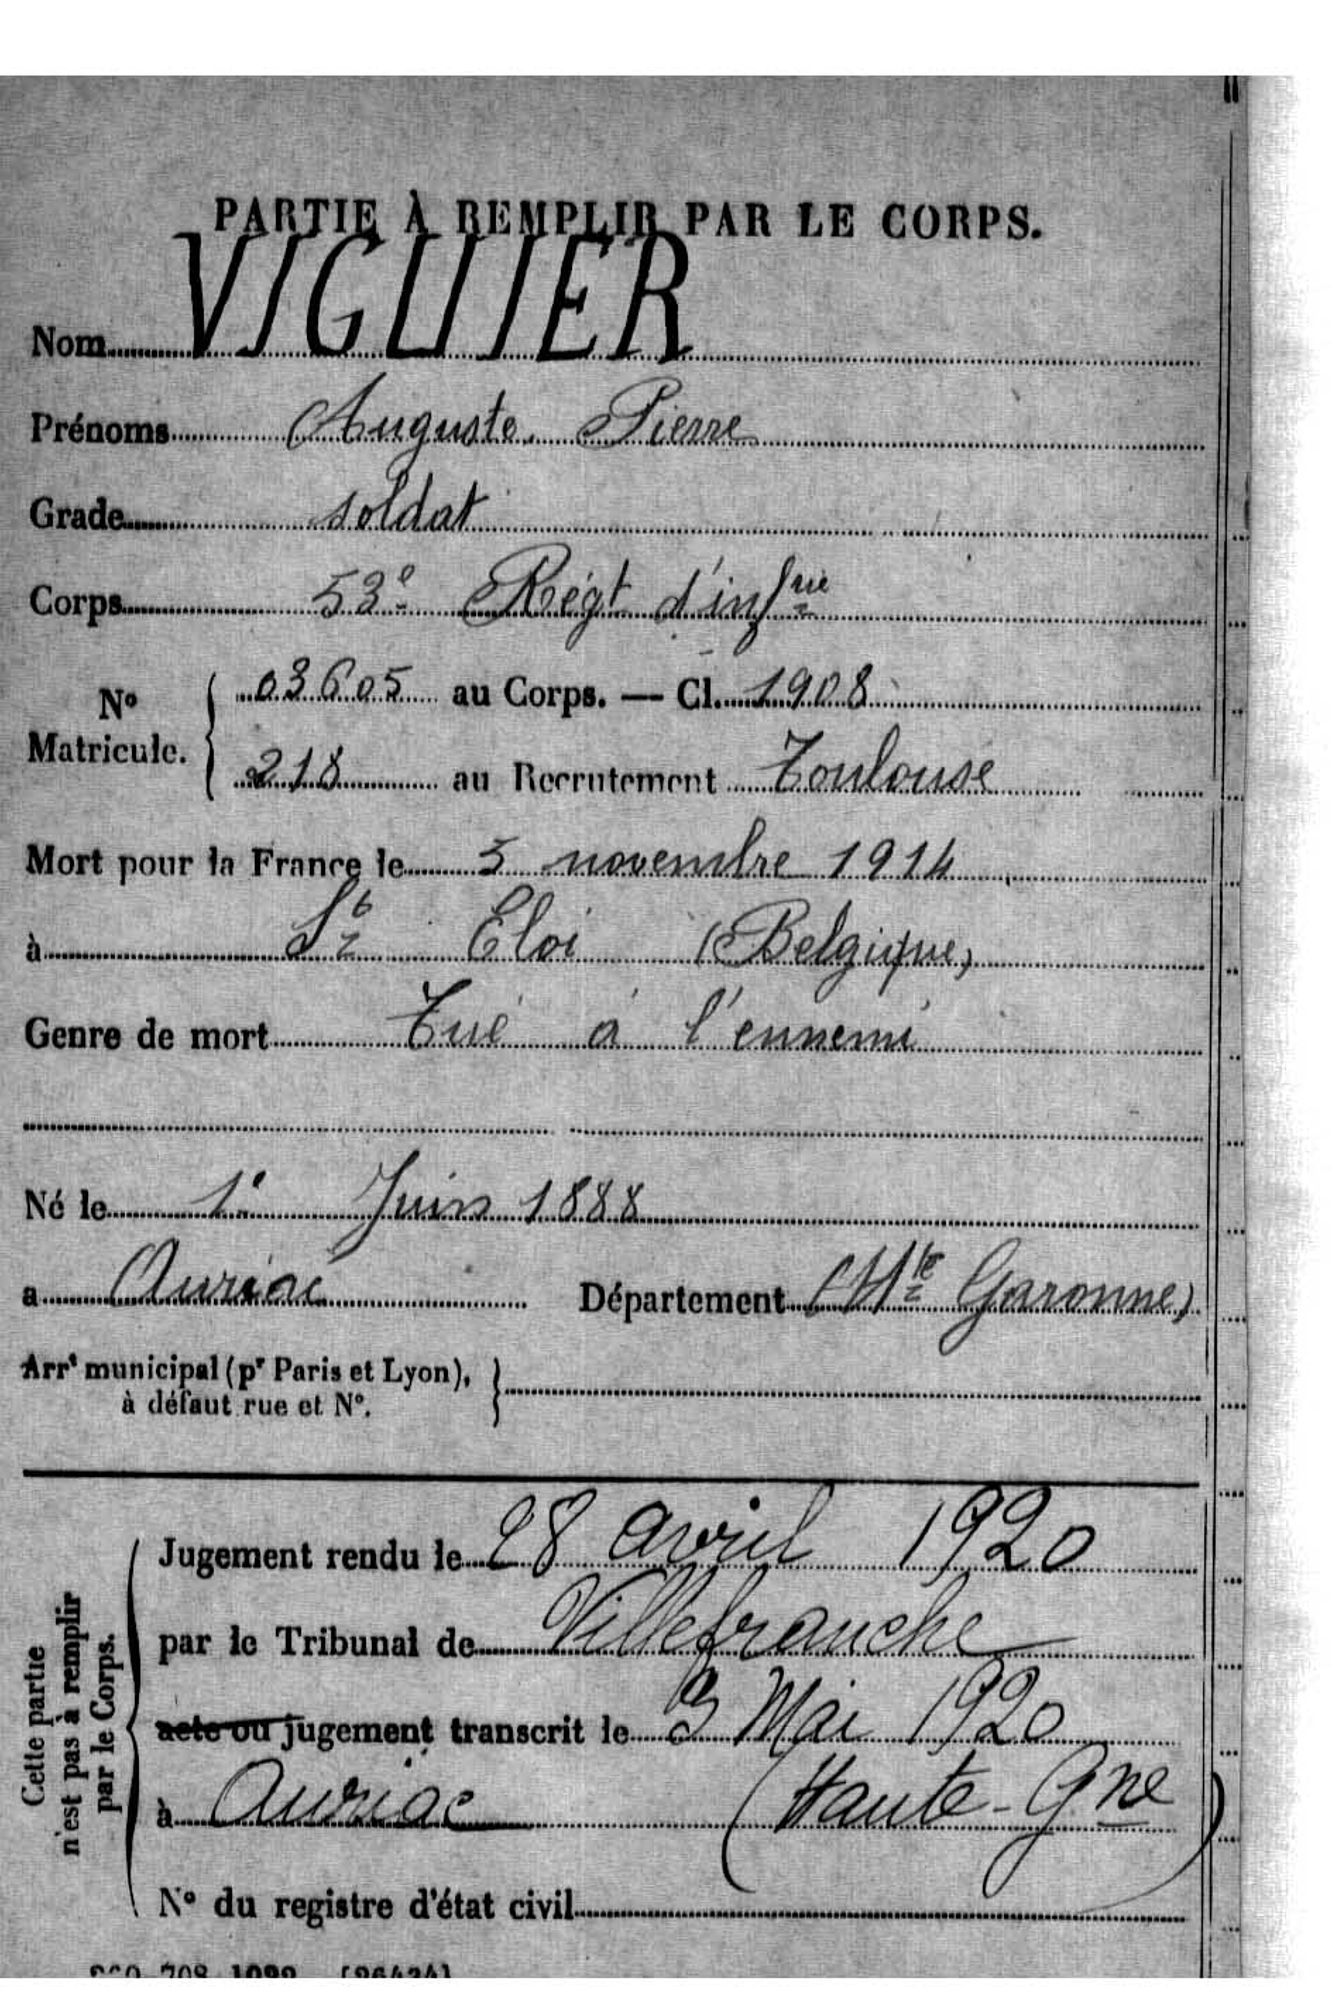 PARTIE À REMPLIR PAR LE CORPS.
Nom VIGUIER
Prénoms Auguste. Pierre
Grade soldat
Corps 53e Régt d'infrie
No Matricule. { 03605 au Corps. — Cl. 1908
218 au Recrutement Toulouse
Mort pour la France le 5 novembre 1914
à St Eloi (Belgique)
Genre de mort Tué à l'ennemi
Né le 1e Juin 1888
a Auriac Département (Hte Garonne)
Arrt municipal (pr Paris et Lyon), à défaut rue et No. }
Cette partie n'est pas à remplir par le Corps. {
Jugement rendu le 28 avril 1920
par le Tribunal de Villefranche
acte ou jugement transcrit le 3 Mai 1920
à Auriac (Haute-Gne)
No du registre d'état civil
708 1922 [26434]